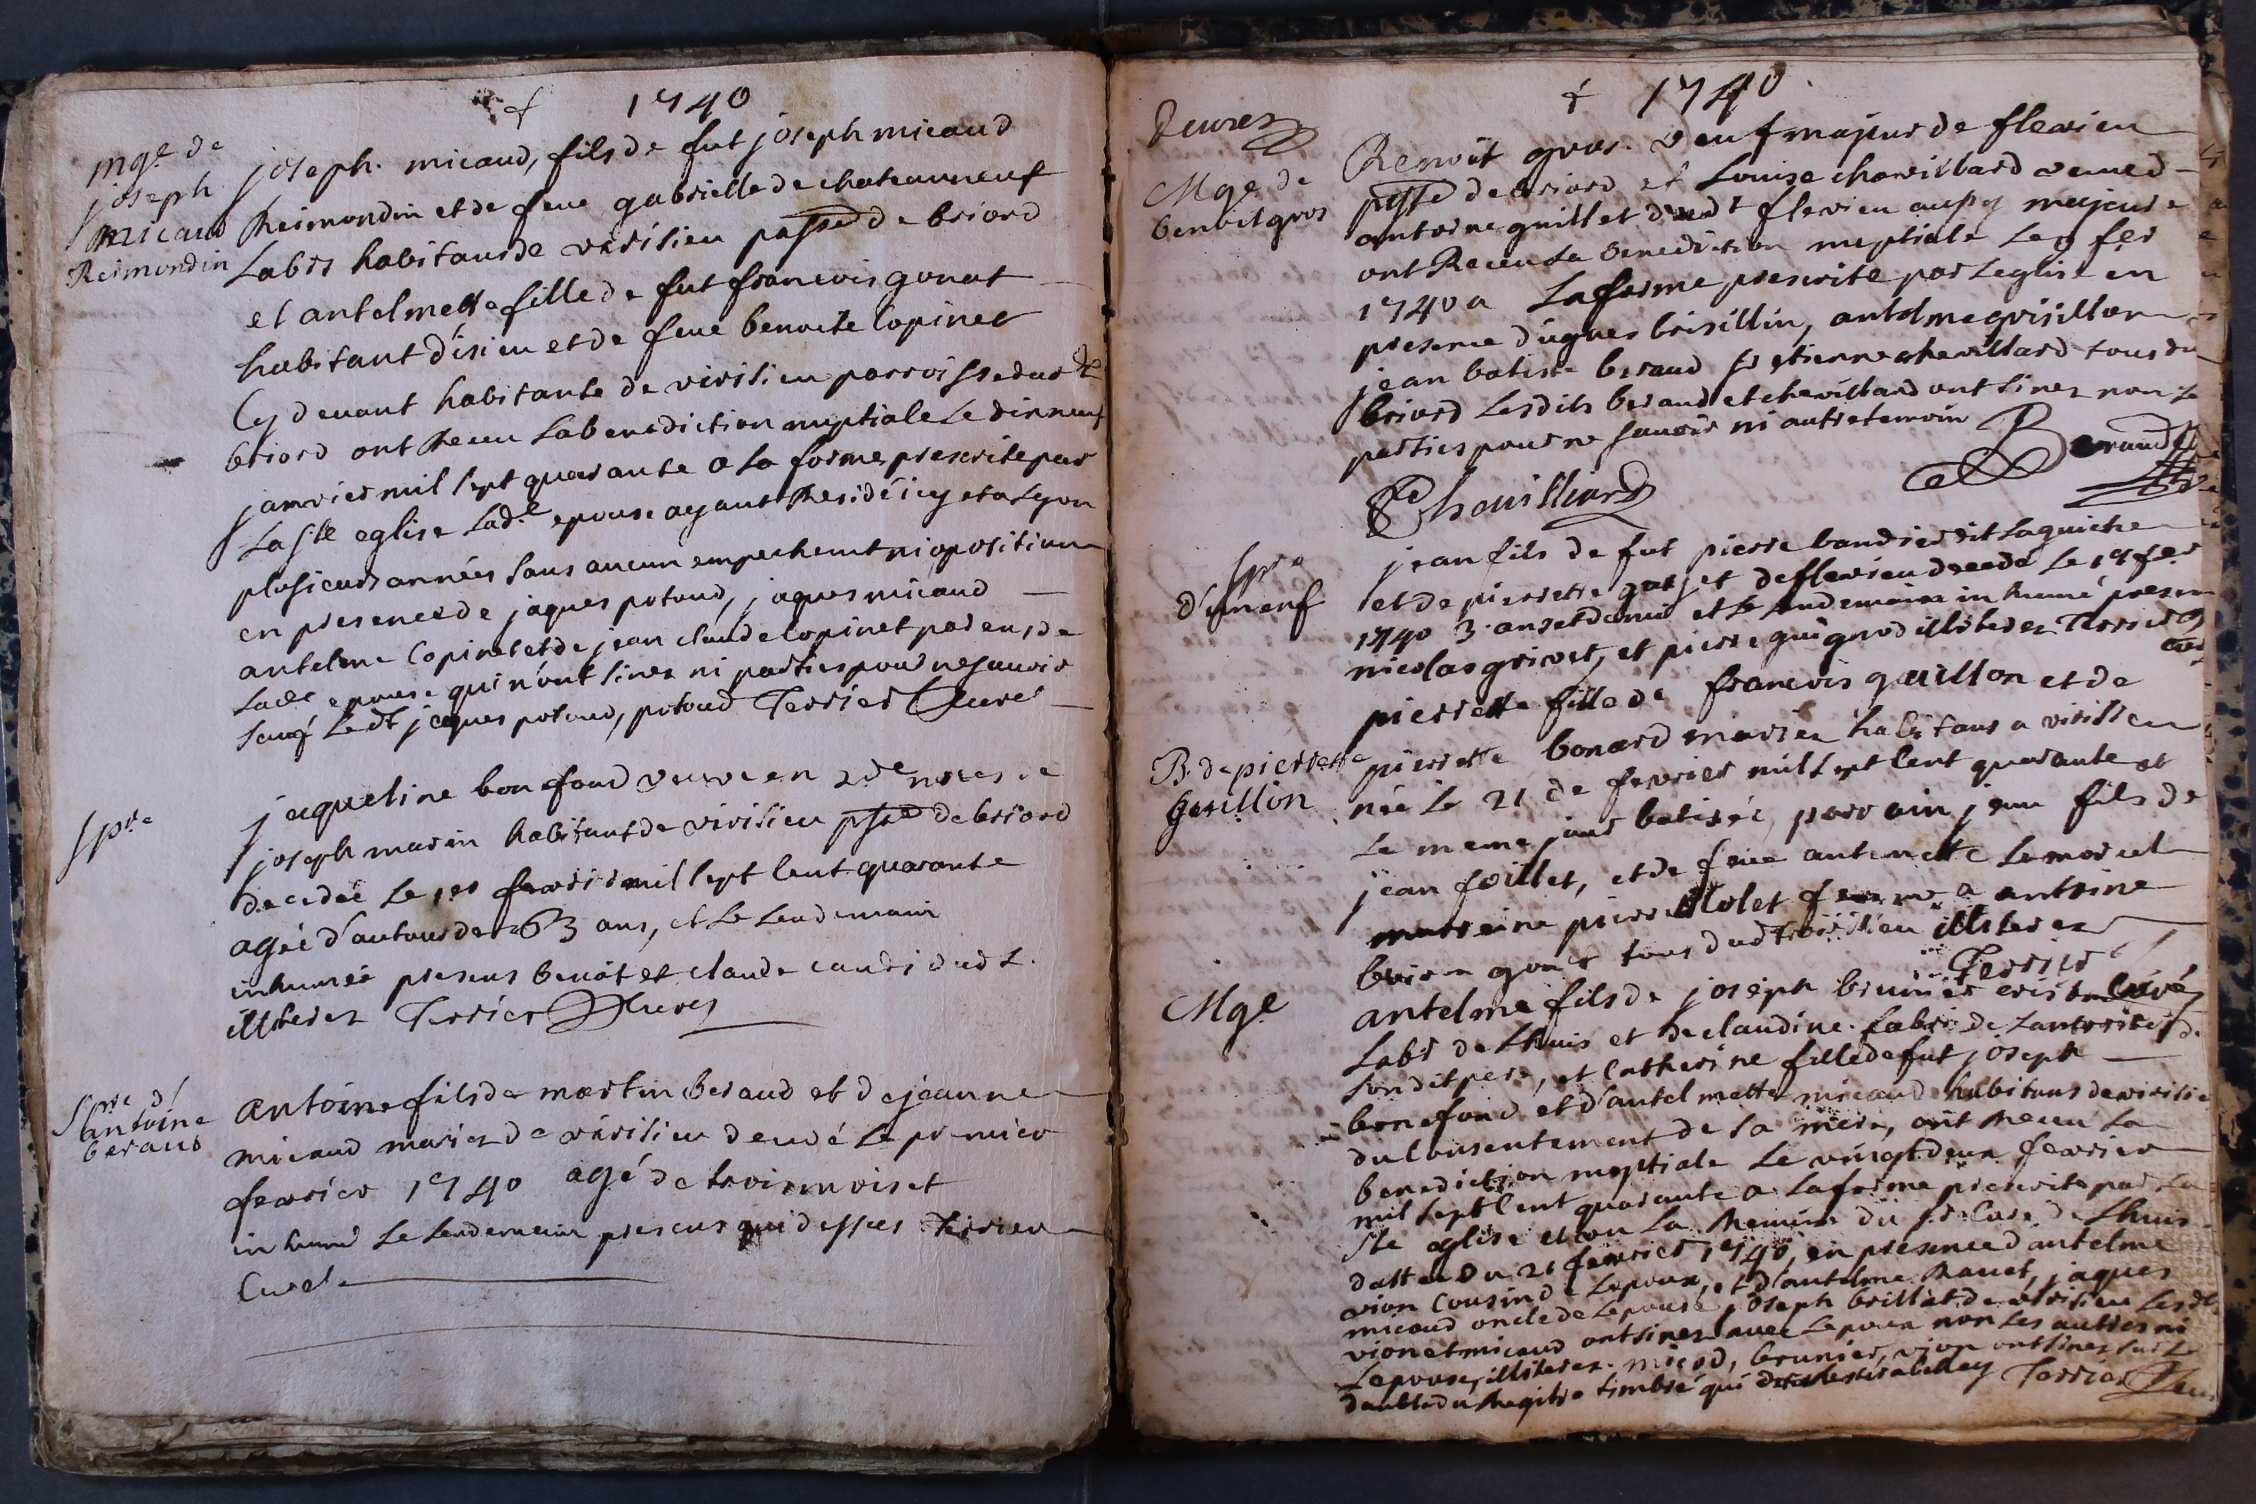 1740
mge. de
joseph
micaud
Reimondin
joseph. micaud, fils de fut joseph micaud
Reimondin et de feue gabrielle de chateauneuf
Labrs habitans de virisieu psse de briord
et antelmette fille de fut francois gonat
habitant d'isieu et de feue benoite Copinet
Cy devant habitante de virisieu parroisse dudt
briord ont Receu La benediction nuptiale Le dixneuf
janvier mil sept quarante a la forme prescrite par
La ste eglise Lade. epouse ayant Residé icy et a Lyon
plusieurs années sans aucun empechemt ni oposition
en presence de jaques potoud, jaques micaud
antelme Copinet et de jean claude Copinet parens de
Lade epouse qui n'ont sinez ni parties pour ne savoir
sauf Ledt jaques potoud, potoud Terrier Cure
spre
jaqueline bonfond veuve en 2de noces de
joseph marin habitant de virisieu psse de briord
decedée Le 1er fevrier mil sept Cent quarante
agée d'autour de 63 ans, et Le Lendemain
inhumée presens benoit et claude dudt.
illiterez Terrier Curez
Spre d'
antoine
beraud
antoine fils de martin Beraud et de jeanne
micaud mariez de virisieu decedé Le premier
fevrier 1740 agé de trois mois et
inhumé Le Lendemain presens qui dessus Terrier
Curé
1740
Mge. de
benoit gros
Benoit gros. veuf majeur de flevieu
psse de briord et Louise chevillard veuve d
antoine guillet dudt flevieu aussy majeure
ont Receu La benediction nuptiale Le 9 fer
1740 a La forme prescrite par Leglise en
presence d'ugues brisillin, antelme grisillon
jean batiste beraud et etienne chevillard tous du
briord Lesdits beraud et chevillard ont sinez non Les
parties pour ne savoir ni autre temoin
Beraud
Chevilliard
spre
jean fils de fut pierre baudrier dit Laguiche
et de pierrette de flevieu decedé Le 19 fer
1740 3. ans et demi et Le Lendemain inhumé presens
nicolas grivet, et pierre guignod illiterez Terrier
B. de pierrette
guillon
pierrette fille de francois guillon et de
pierrette bonard mariez habitans a virisieu
née Le 21 de fevrier mil sept Cent quarante et
Le meme jour batisée, parrain jean fils de
jean foillet, et de feue antoinette Lemorcel
marraine pierrette femme a antoine
tous dud virisieu illiterez
Terrier
curé
Mge.
antelme fils de joseph brunier
Labr de Lhuis et de claudine. fabri de Lautorité de
son dit pere, et Catherine fille de fut joseph
bonefond et d'antelmette micaud habitans de virisieu
du Consentement de sa mere, ont Receu La
benediction nuptiale Le vingt deux fevrier
mil sept Cent quarante a La forme prescrite par La
ste eglise et ou La Remise du sr Curé de Lhuis
dattée du 21 fevrier 1740, en presence d'antelme
vion Cousin de Lepoux, et d'antelme Ravet, jaques
micaud oncle de Lepouse joseph brillat de virisieu Lesdts
vion et micaud ont sinez avec Lepoux non Les autres ni
Lepouse, illiterez. micod, brunier, vion ont sinez sur Le
double du Registre timbré qui Terrier Cure